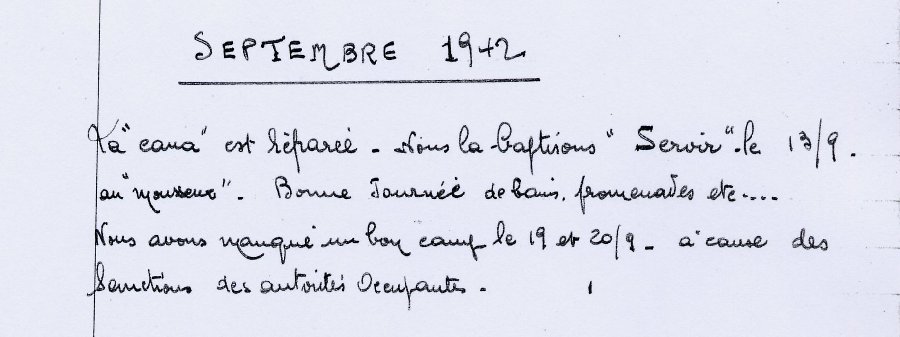 SEPTEMBRE 1942
La "cana" est réparée - Nous la baptisons "Servir". le 13/9.
au "mousseux". Bonne Journée de bains, promenades etc....
Nous avons manqué un bon camp le 19 et 20/9 - à cause des
Sanctions des autorités Occupantes.